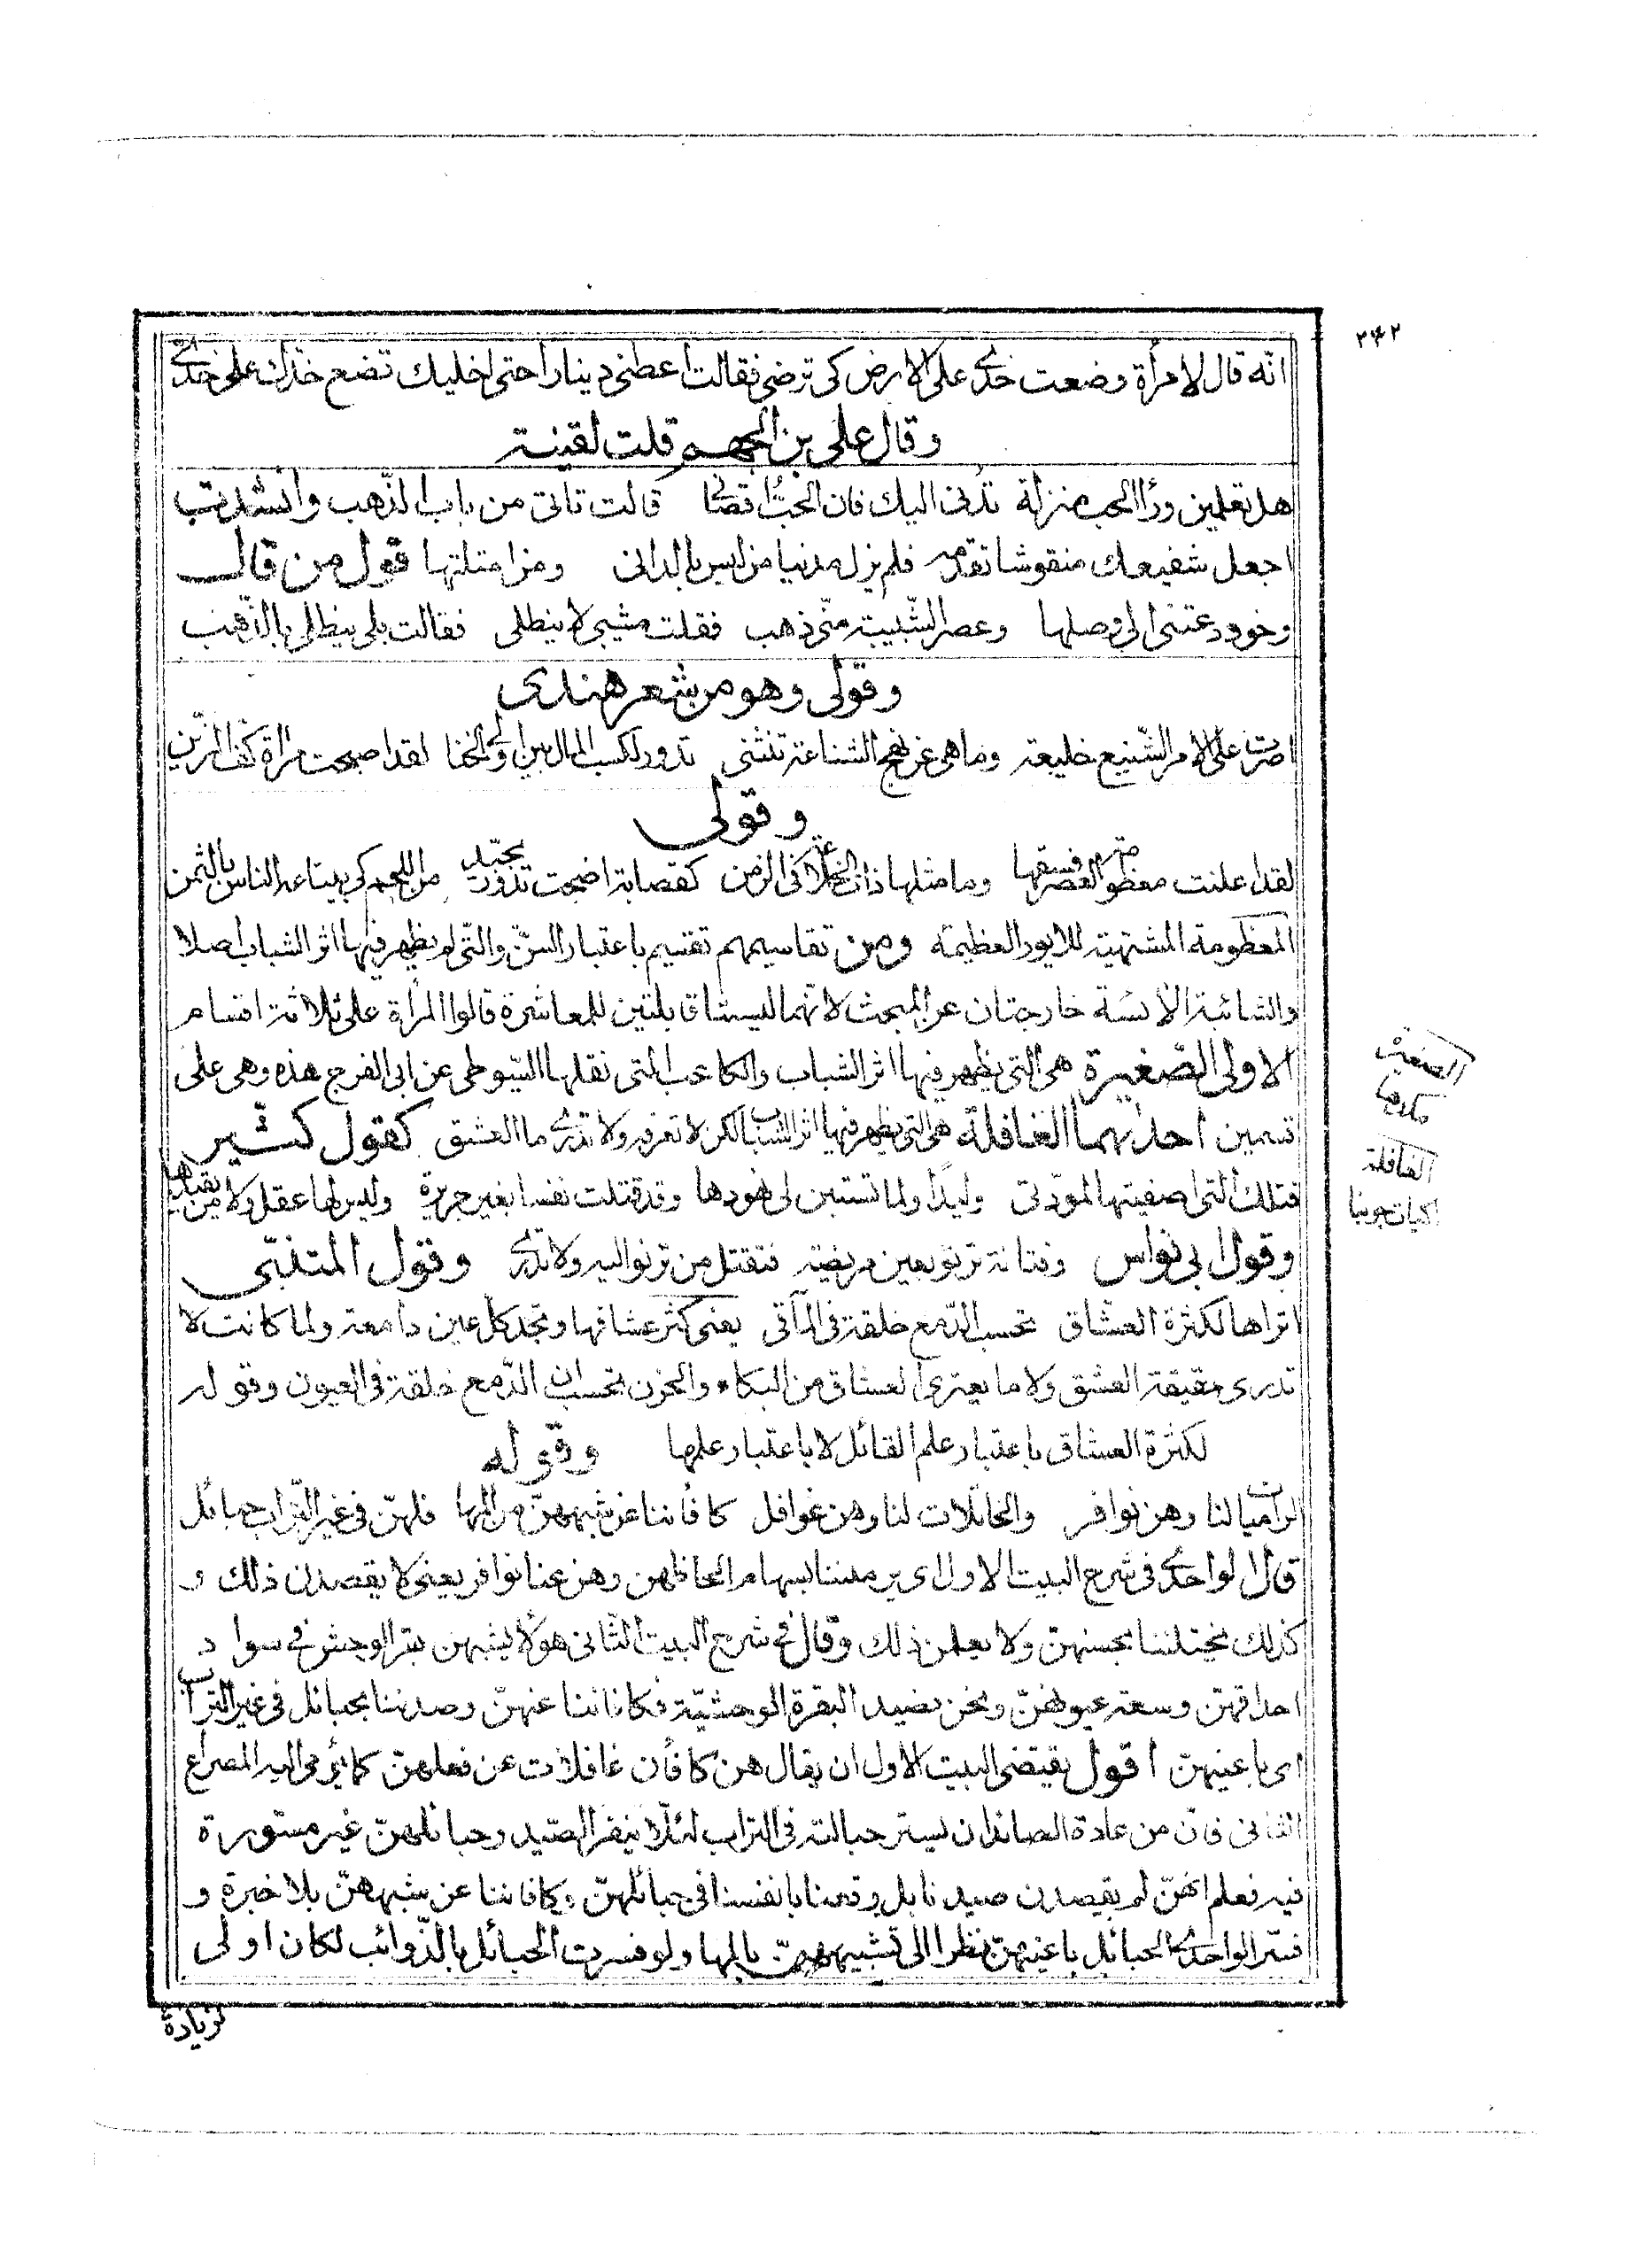 ٢٤٢
انه قال لامرأة وضعت خدي على الارض كي ترضى فقالت اعطني دينارا حتى اخليك تضع خدك على خدي
وقال علي بن الجهم قلت لقينة
هل تعلمين ورا الحب منزلة تدنى اليك فان الحب اقصانا قالت تاتى من باب الذهب وانشدت
اجعل شفيعك منقوشا تقدمه فلم يزل مدنيا من ليس بالدانى ومن امثلتها قول من قال
وخود دعتنى الى وصلها وعصر الشبيبة منى ذهب فقلت مشيبى لا ينطلى فقالت بلى ينطلى بالذهب
وقولى وهو من شعر هندى
اصرت على الامر الشنيع خليعة وما هى عن نهج الشناعة تنثنى تدور لكسب المال بين اولى الخنا لقد اصبحت مرأة كف المزين
وقولى
لقد اعلنت معظومة العصر فسقها وما مثلها ذات الخلاعة فى الزمن كقصابة اضحت تدور بجيّد من اللحم كى يبتاعه الناس بالثمن
المعظومة المشتهية للايور العظيمة ومن تقاسيمهم تقسيم باعتبار السن والتى لم يظهر فيها اثر الشباب اصلا
والشائبة الآئسة خارجتان عن المبحث لانهما ليستا قابلتين للمعاشرة قالوا المرأة على ثلاثة اقسام
الاولى الصغيرة هى التى يظهر فيها اثر الشباب والكاعب التى نقلها السيوطى عن ابى الفرج هذه وهى على
قسمين احدٰهما الغافلة هى التى يظهر فيها اثر الشباب لكن لا تعرفه ولا تدرى ما العشق كقول كثير
فتلك التى اصفيتها المودتى وليدا ولما تستبن لى نهودها وقد قتلت نفسا بغير جريرة وليس لها عقل ولا من يقيدها
وقول ابى نواس وفتانة ترنو بعين مريضة فتقتل من ترنو اليه ولا تدرى وقول المتنبى
اتراها لكثرة العشاق تحسب الدمع خلقة فى المآقى يعنى كثر عشاقها وتجد كل عين دامعة ولما كانت لا
تدرى حقيقة العشق ولا ما يعترى العشاق من البكاء والحزن تحسب ان الدمع خلقة فى العيون وقوله
لكثرة العشاق باعتبار علم القائل لا باعتبار علمها وقوله
الراميات لنا وهن نوافر والخاتلات لنا وهن غوافل كافأننا عن شبههن من المها فلهن فى غير التراب حبائل
قال الواحدى فى شرح البيت الاول اى يرميننا بسهام الحاظهن وهن عنا نوافر يعنى لا يقصدن ذلك و
كذلك يختلننا بحسنهن ولا يعلمن ذلك وقال فى شرح البيت الثانى هؤلا يشبهن بقر الوحش فى سواد
احداقهن وسعة عيونهن ونحن نصيد البقرة الوحشية فكافاننا عنهن وصدننا بحبائل فى غير التراب
اى باعينهن اقول يقتضى البيت الاول ان يقال هن كافأن غافلات عن فعلهن كما يؤمى اليه المصراع
الثانى فان من عادة الصائد ان يستر حبالته فى التراب لئلا ينفر الصيد وحبائلهن غير مستورة
فيه فعلم انهن لم يقصدن صيدنا بل وقعنا بانفسنا فى حبائلهن وكافاننا عن شبههن بلا خبرة و
فسر الواحدى الحبائل باعينهن نظرا الى تشبيههن بالمها ولو فسرت الحبائل بالذوائب لكان اولى
زيادة
الصغيرة
الغافلة